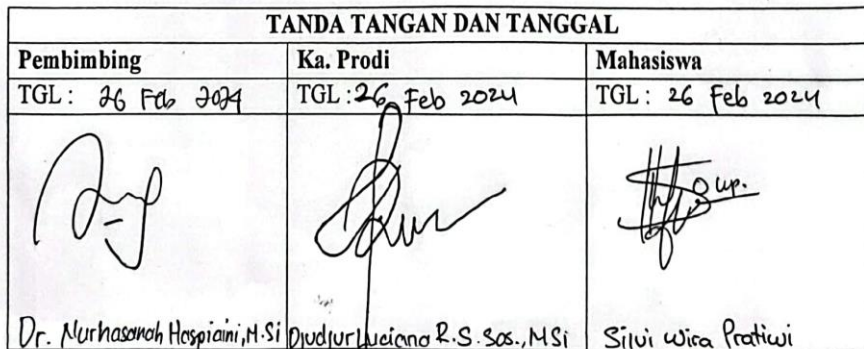 TANDA TANGAN DAN TANGGAL
Pembimbing Ka. Prodi Mahasiswa
TGL : 26 Feb 2024 TGL : 26 Feb 2024 TGL : 26 Feb 2024
Dr. Nurhasanah Haspiaini, M.Si Djudjur Luciana R. S. Sos., MSi Silvi Wira Pratiwi